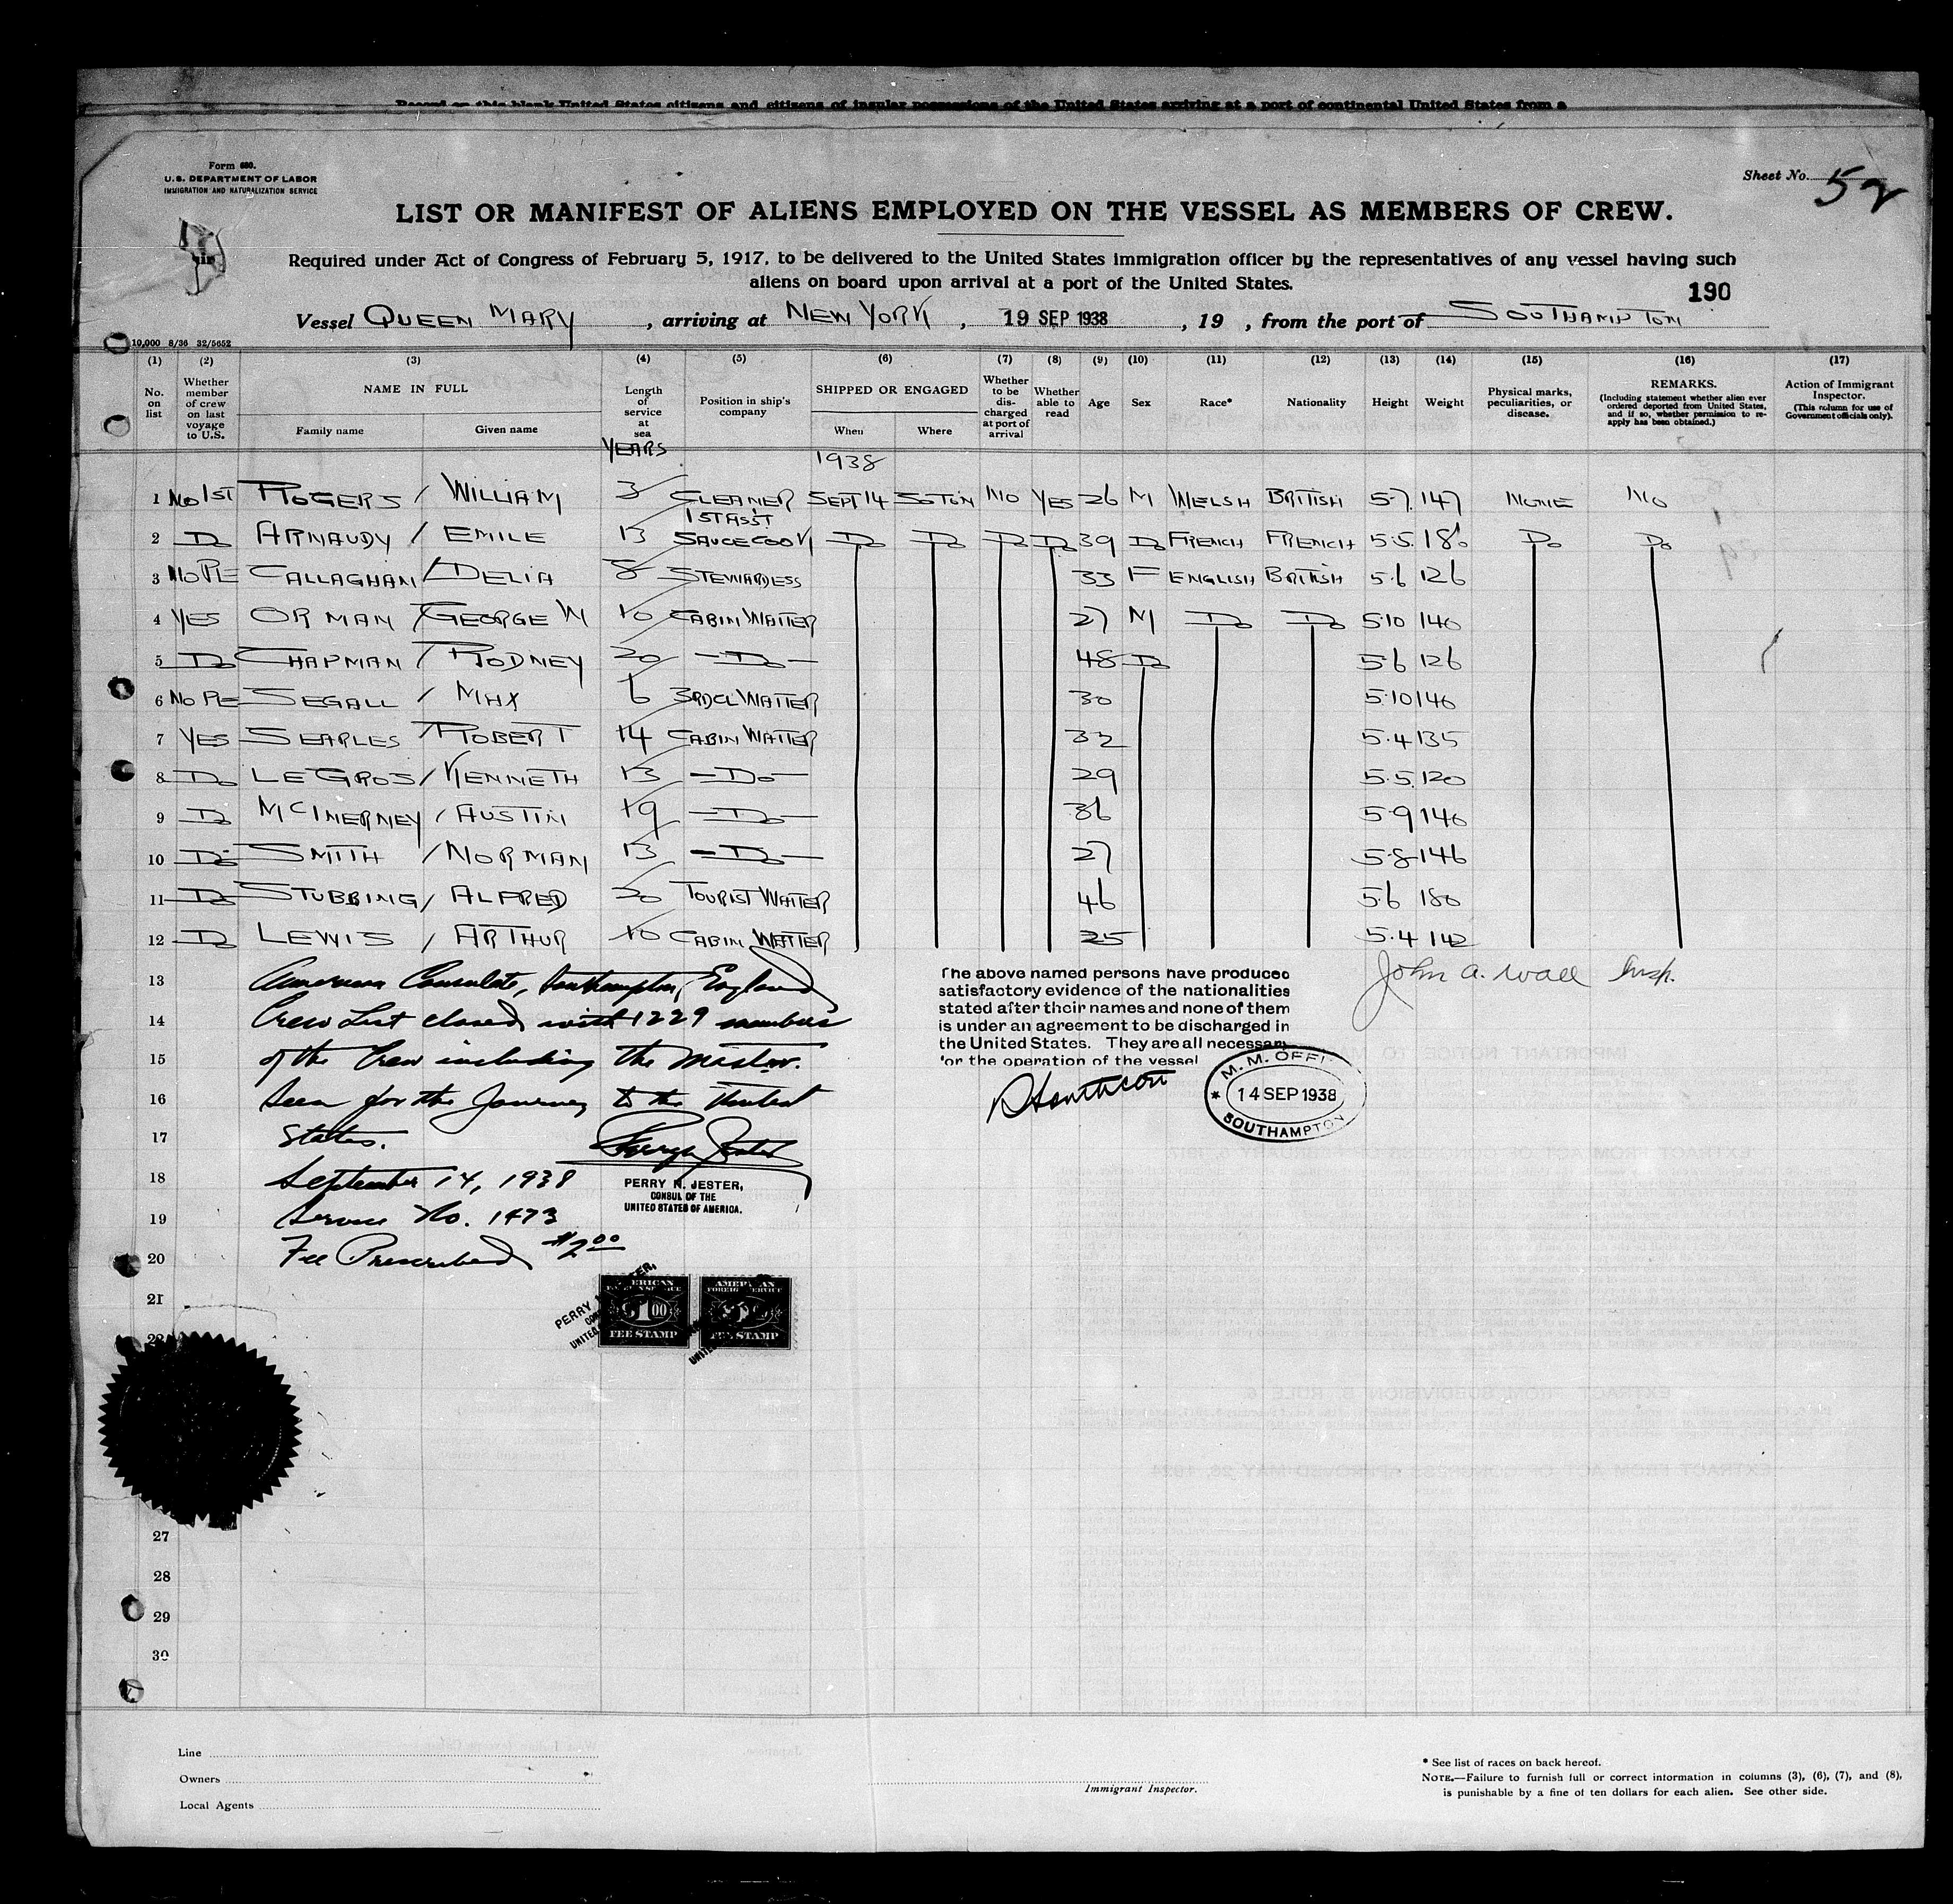 Record on this blank United States citizens and citizens of insular possessions of the United States arriving at a port of continental United States from a
Form 680.
U.S. DEPARTMENT OF LABOR
IMMIGRATION AND NATURALIZATION SERVICE
Sheet No. 52
LIST OR MANIFEST OF ALIENS EMPLOYED ON THE VESSEL AS MEMBERS OF CREW.
Required under Act of Congress of February 5, 1917, to be delivered to the United States immigration officer by the representatives of any vessel having such
aliens on board upon arrival at a port of the United States.
190
Vessel QUEEN MARY, arriving at NEW YORK, 19 SEP 1938, 19 , from the port of SOUTHAMPTON
10,000 8/36 32/5652
(1) (2) (3) (4) (5) (6) (7) (8) (9) (10) (11) (12) (13) (14) (15) (16) (17)
No. on list
Whether member of crew on last voyage to U.S.
NAME IN FULL
Family name Given name
Length of service at sea
YEARS
Position in ship's company
SHIPPED OR ENGAGED
When Where
1938
Whether to be discharged at port of arrival
Whether able to read
Age Sex Race* Nationality Height Weight
Physical marks, peculiarities, or disease.
REMARKS.
(Including statement whether alien ever ordered deported from United States, and if so, whether permission to reapply has been obtained.)
Action of Immigrant Inspector.
(This column for use of Government officials only).
1 NO 1ST ROGERS / WILLIAM 3 CLEANER SEPT 14 SOTON NO YES 26 M WELSH BRITISH 5·7 147 NONE NO
2 DO ARNAUDY / EMILE 13 1ST ASST SAUCE COOK DO DO DO DO 39 DO FRENCH FRENCH 5·5 186 DO DO
3 NO PE CALLAGHAN / DELIA 8 STEWARDESS 33 F ENGLISH BRITISH 5·6 126
4 YES ORMAN / GEORGE W 10 CABIN WAITER 27 M DO DO 5·10 140
5 DO CHAPMAN / RODNEY 20 -DO- 48 DO 5·6 126
6 NO PE SEGALL / MAX 6 3RD CL WAITER 30 5·10 146
7 YES SEARLES / ROBERT 14 CABIN WAITER 32 5·4 135
8 DO LE GROS / KENNETH 13 -DO- 29 5·5 120
9 DO McINERNEY / AUSTIN 19 -DO- 36 5·9 146
10 DO SMITH / NORMAN 13 -DO- 27 5·8 146
11 DO STUBBING / ALFRED 20 TOURIST WAITER 46 5·6 180
12 DO LEWIS / ARTHUR 10 CABIN WAITER 25 5·4 142
13 American Consulate, Southampton, England
14 Crew List closed with 1229 members
15 of the Crew including the master.
16 Seen for the Journey to the United
17 States.
18 September 14, 1938
19 Service No. 1473
20 Fee Prescribed $2.00
PERRY N. JESTER,
CONSUL OF THE
UNITED STATES OF AMERICA.
The above named persons have produced
satisfactory evidence of the nationalities
stated after their names and none of them
is under an agreement to be discharged in
the United States. They are all necessary
for the operation of the vessel
John A. Wall Insp.
M. M. OFFI
14 SEP 1938
SOUTHAMPTON
AMERICAN FOREIGN SERVICE
$1.00
FEE STAMP
AMERICAN
FOREIGN SERVICE
FEE STAMP
21
22
27
28
29
30
Line
Owners
Local Agents
Immigrant Inspector.
* See list of races on back hereof.
NOTE.—Failure to furnish full or correct information in columns (3), (6), (7), and (8),
is punishable by a fine of ten dollars for each alien. See other side.